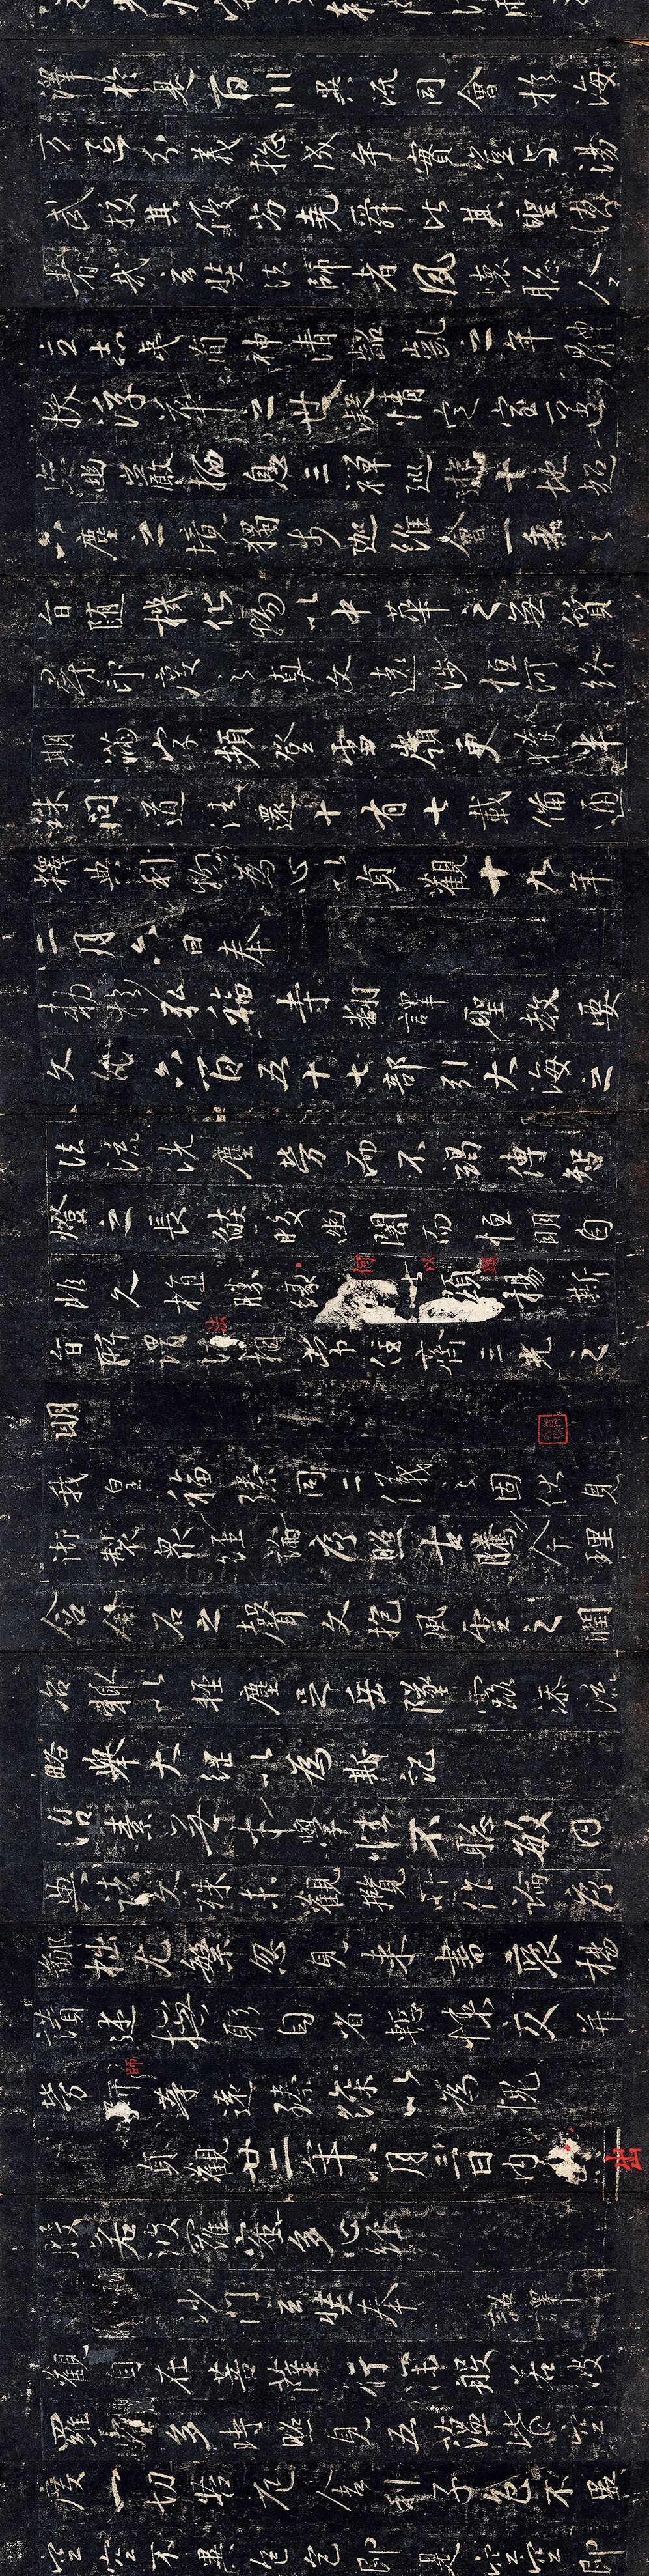 澤於是百川異流同會於海
万區分義総成乎實豈与湯
武挍其優劣堯舜比其聖德
者哉玄奘法師者夙懷聡令
立志夷簡神清齠齔之年體
拔浮華之世凝情定室匿迹
幽巖栖息三禪巡遊十地超
六塵之境獨步迦維會一乘之
旨随機化物以中華之無質
尋印度之真文遠涉恒河終
期滿字頻登雪嶺更獲半
珠問道法還十有七載備通
釋典利物為心以貞觀十九年
二月六日奉
勑於弘福寺翻譯聖教要
文凡六百五十七部引大海之
法流洗塵勞而不竭傳智
燈之長焰皎幽闇而恒明自
非久植勝緣何以顯揚斯
旨所謂法相常住齊三光之
明
我皇福臻同二儀之固伏見
御製衆經論序照古騰今理
含金石之聲文抱風雲之潤
治輒以輕塵足岳墜露添流
略舉大綱以為斯記
治素無才學性不聡敏內
典諸文殊未觀攬所作論序
鄙拙尤繁忽見來書褒揚
讃述撫躬自省慙悚交并
勞師等遠臻深以為愧
貞觀廿二年八月三日內出
般若波羅蜜多心經
沙門玄奘奉 詔譯
觀自在菩薩行深般若波
羅蜜多時照見五蘊皆空
度一切苦厄舍利子色不異
空空不異色色即是空空即